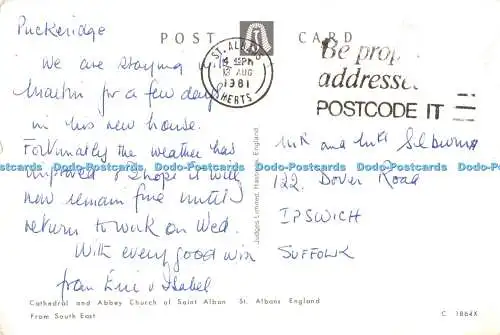 Puckeridge
POST CARD
We are staying with
Martin for a few days
in his new house.
Fortunately the weather has
improved I hope it will
now remain fine until
return to work on Wed.
With every good wish
from Eric & Isabel
ST. ALBANS
4 45PM
13 AUG
1981
HERTS
Be prop
addresse
POSTCODE IT
Mr and Mrs
122 Dover Road
IPSWICH
SUFFOLK
Judges Limited, Hastings, England
Dodo-Postcards Dodo-Postcards Dodo-Postcards Dodo-Postcards Dodo-Postcards Dodo-Postcards
Cathedral and Abbey Church of Saint Alban St. Albans England
From South East
C 1864X